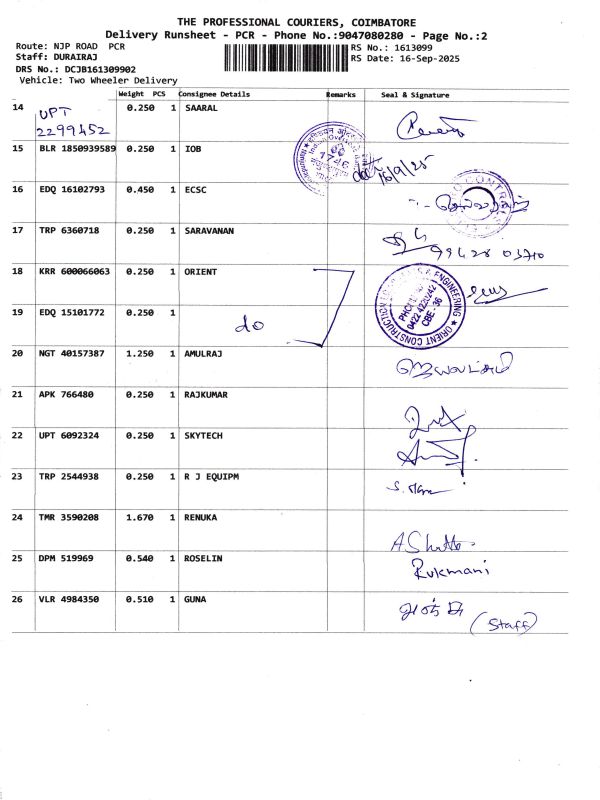 THE PROFESSIONAL COURIERS, COIMBATORE
Delivery Runsheet - PCR - Phone No.:9047080280 - Page No.:2
Route: NJP ROAD PCR
RS No.: 1613099
Staff: DURAIRAJ
RS Date: 16-Sep-2025
DRS No.: DCJB161309902
Vehicle: Two Wheeler Delivery
Weight PCS Consignee Details Remarks Seal & Signature
14 UPT 2299452 0.250 1 SAARAL
15 BLR 1850939589 0.250 1 IOB 16/9/25
16 EDQ 16102793 0.450 1 ECSC
17 TRP 6360718 0.250 1 SARAVANAN 99428 03710
18 KRR 600066063 0.250 1 ORIENT
ORIENT CONSTRUCTION & ENGINEERING
0422 4220242
CBE - 36
19 EDQ 15101772 0.250 1 do
20 NGT 40157387 1.250 1 AMULRAJ
21 APK 766480 0.250 1 RAJKUMAR
22 UPT 6092324 0.250 1 SKYTECH
23 TRP 2544938 0.250 1 R J EQUIPM
24 TMR 3590208 1.670 1 RENUKA
25 DPM 519969 0.540 1 ROSELIN Rukmani
26 VLR 4984350 0.510 1 GUNA
(Staff)